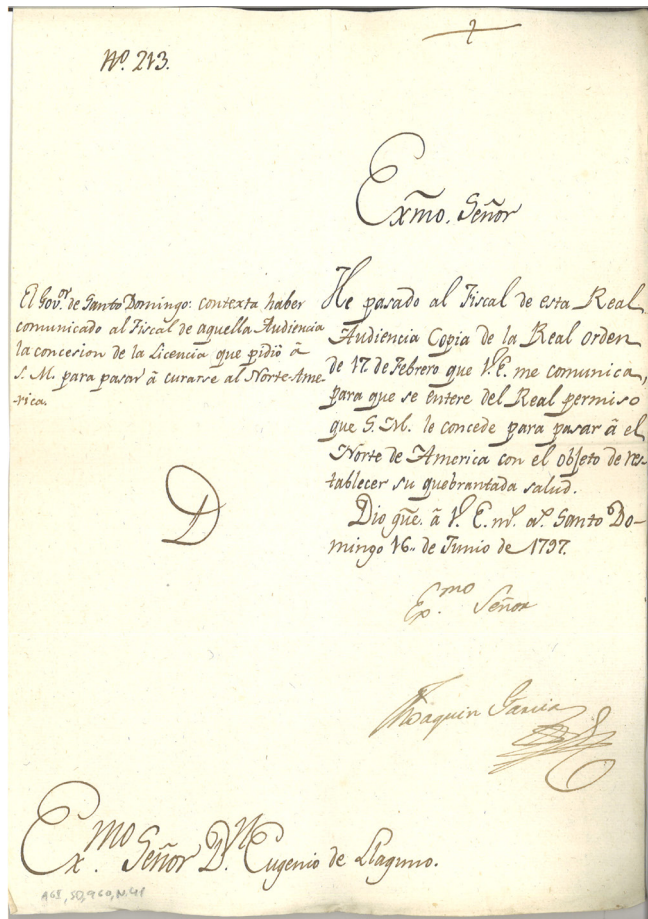 Nº. 213.
Exmo. Señor
El Govor. de Santo Domingo: contexta haber
comunicado al Fiscal de aquella Audiencia
la concesion de la Licencia que pidiò â
S. M. para pasar â curarse al Norte-Ame-
-rica.
He pasado al Fiscal de esta Real
Audiencia Copia de la Real orden
de 17. de Febrero que V.E. me comunica,
para que se entere del Real permiso
que S.M. le concede para pasar â el
Norte de America con el objeto de res-
tablecer su quebrantada salud.
Dio gue. â V. E. ms. as. Santo Do-
mingo 16.. de Junio de 1797.
D
Exmo. Señor
Joaquin Garcia
Exmo. Señor Dn. Eugenio de Llaguno.
AGS, SD, 960, N.41